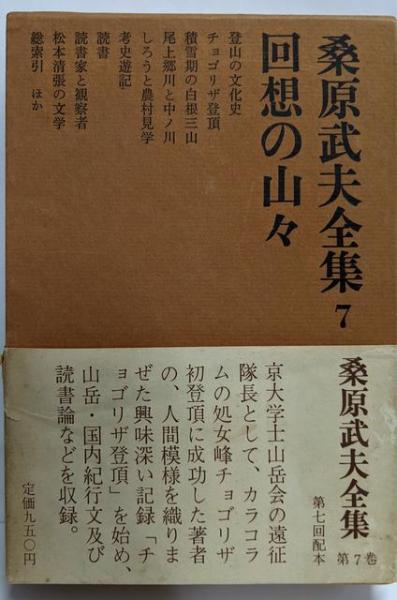 桑原武夫全集 7
回想の山々
登山の文化史
チョゴリザ登頂
積雪期の白根三山
尾上郷川と中ノ川
しろうと農村見学
考史遊記
読書
読書家と観察者
松本清張の文学
総索引 ほか
桑原武夫全集 第7巻
第七回配本
京大学士山岳会の遠征
隊長として、カラコラ
ムの処女峰チョゴリザ
初登頂に成功した著者
の、人間模様を織りま
ぜた興味深い記録「チ
ョゴリザ登頂」を始め、
山岳・国内紀行文及び
読書論などを収録。
定価九五〇円